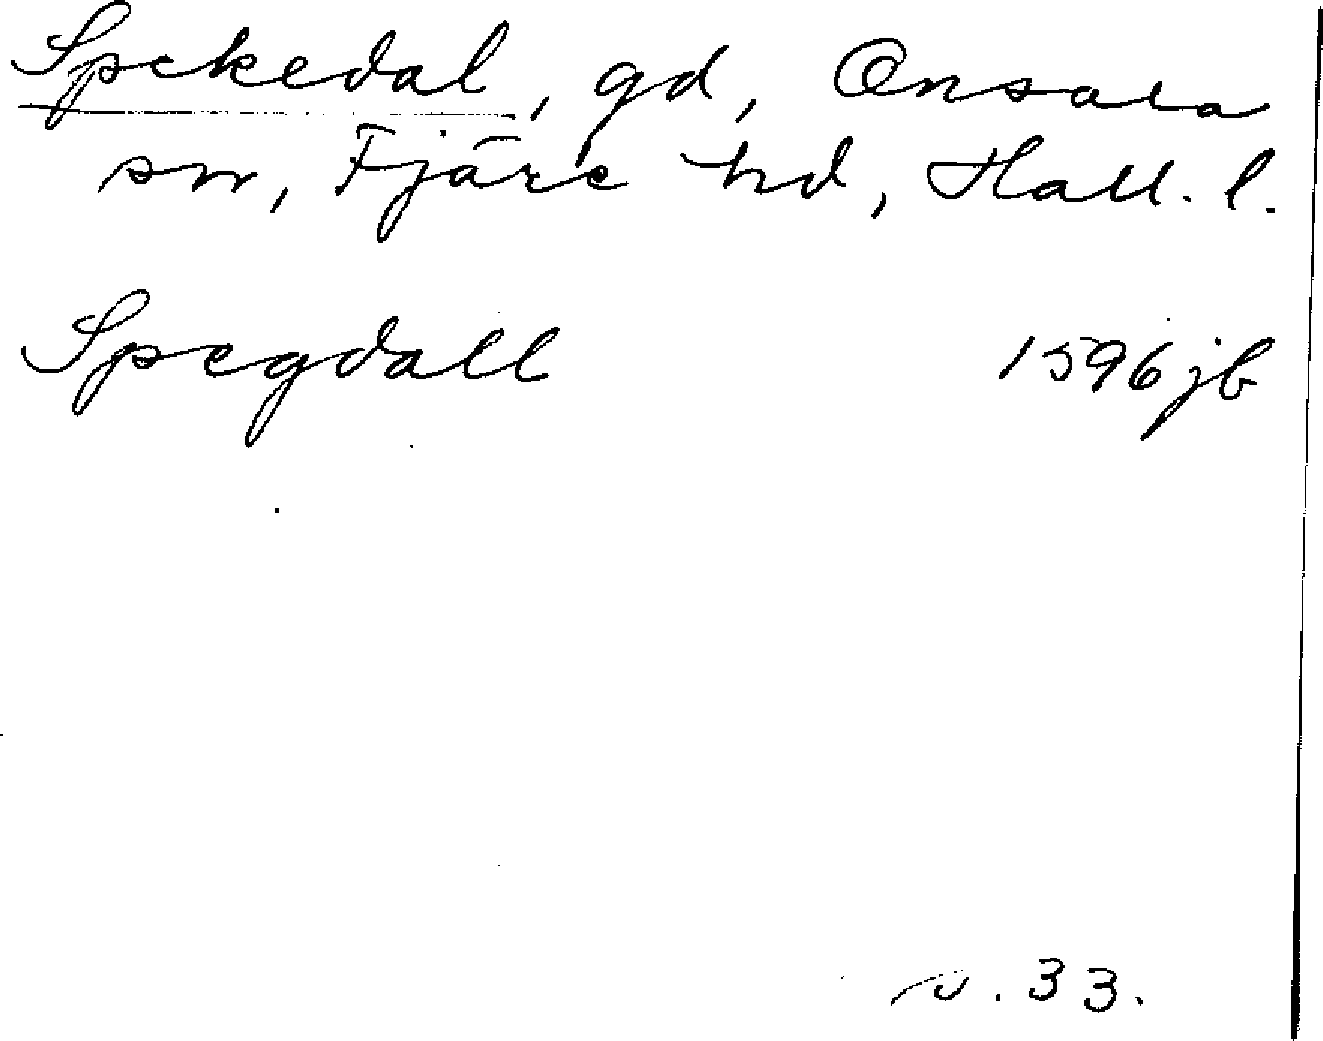 Spekedal, gd, Onsala
sn, Fjäre hd, Hall. l.
Spegdall 1596 jb
33.